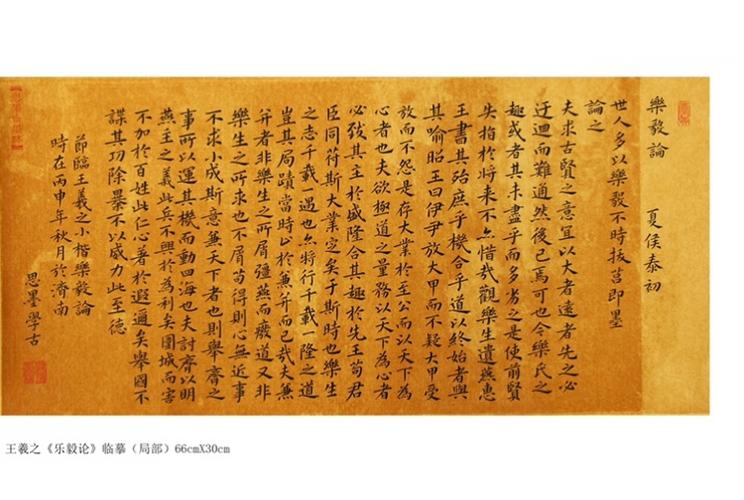 樂毅論 夏侯泰初
世人多以樂毅不時拔莒即墨
論之
夫求古賢之意宜以大者遠者先之必
迂迴而難通然後已焉可也今樂氏之
趣或者其未盡乎而多劣之是使前賢
失指於將來不亦惜哉觀樂生遺燕惠
王書其殆庶乎機合乎道以終始者與
其喻昭王曰伊尹放大甲而不疑大甲受
放而不怨是存大業於至公而以天下為
心者也夫欲極道之量務以天下為心者
必致其主於盛隆合其趣於先王苟君
臣同符斯大業定矣于斯時也樂生
之志千載一遇也亦將行千載一隆之道
豈其局蹟當時止於兼并而已哉夫兼
并者非樂生之所屑彊燕而廢道又非
樂生之所求也不屑苟得則心無近事
不求小成斯意兼天下者也則舉齊之
事所以運其機而動四海也夫討齊以明
燕主之義此兵不興於為利矣圍城而害
不加於百姓此仁心著於遐邇矣舉國不
謀其功除暴不以威力此至德
節臨王羲之小楷樂毅論
時在丙申年秋月於濟南
思墨學古
王羲之《乐毅论》临摹（局部）66cmX30cm